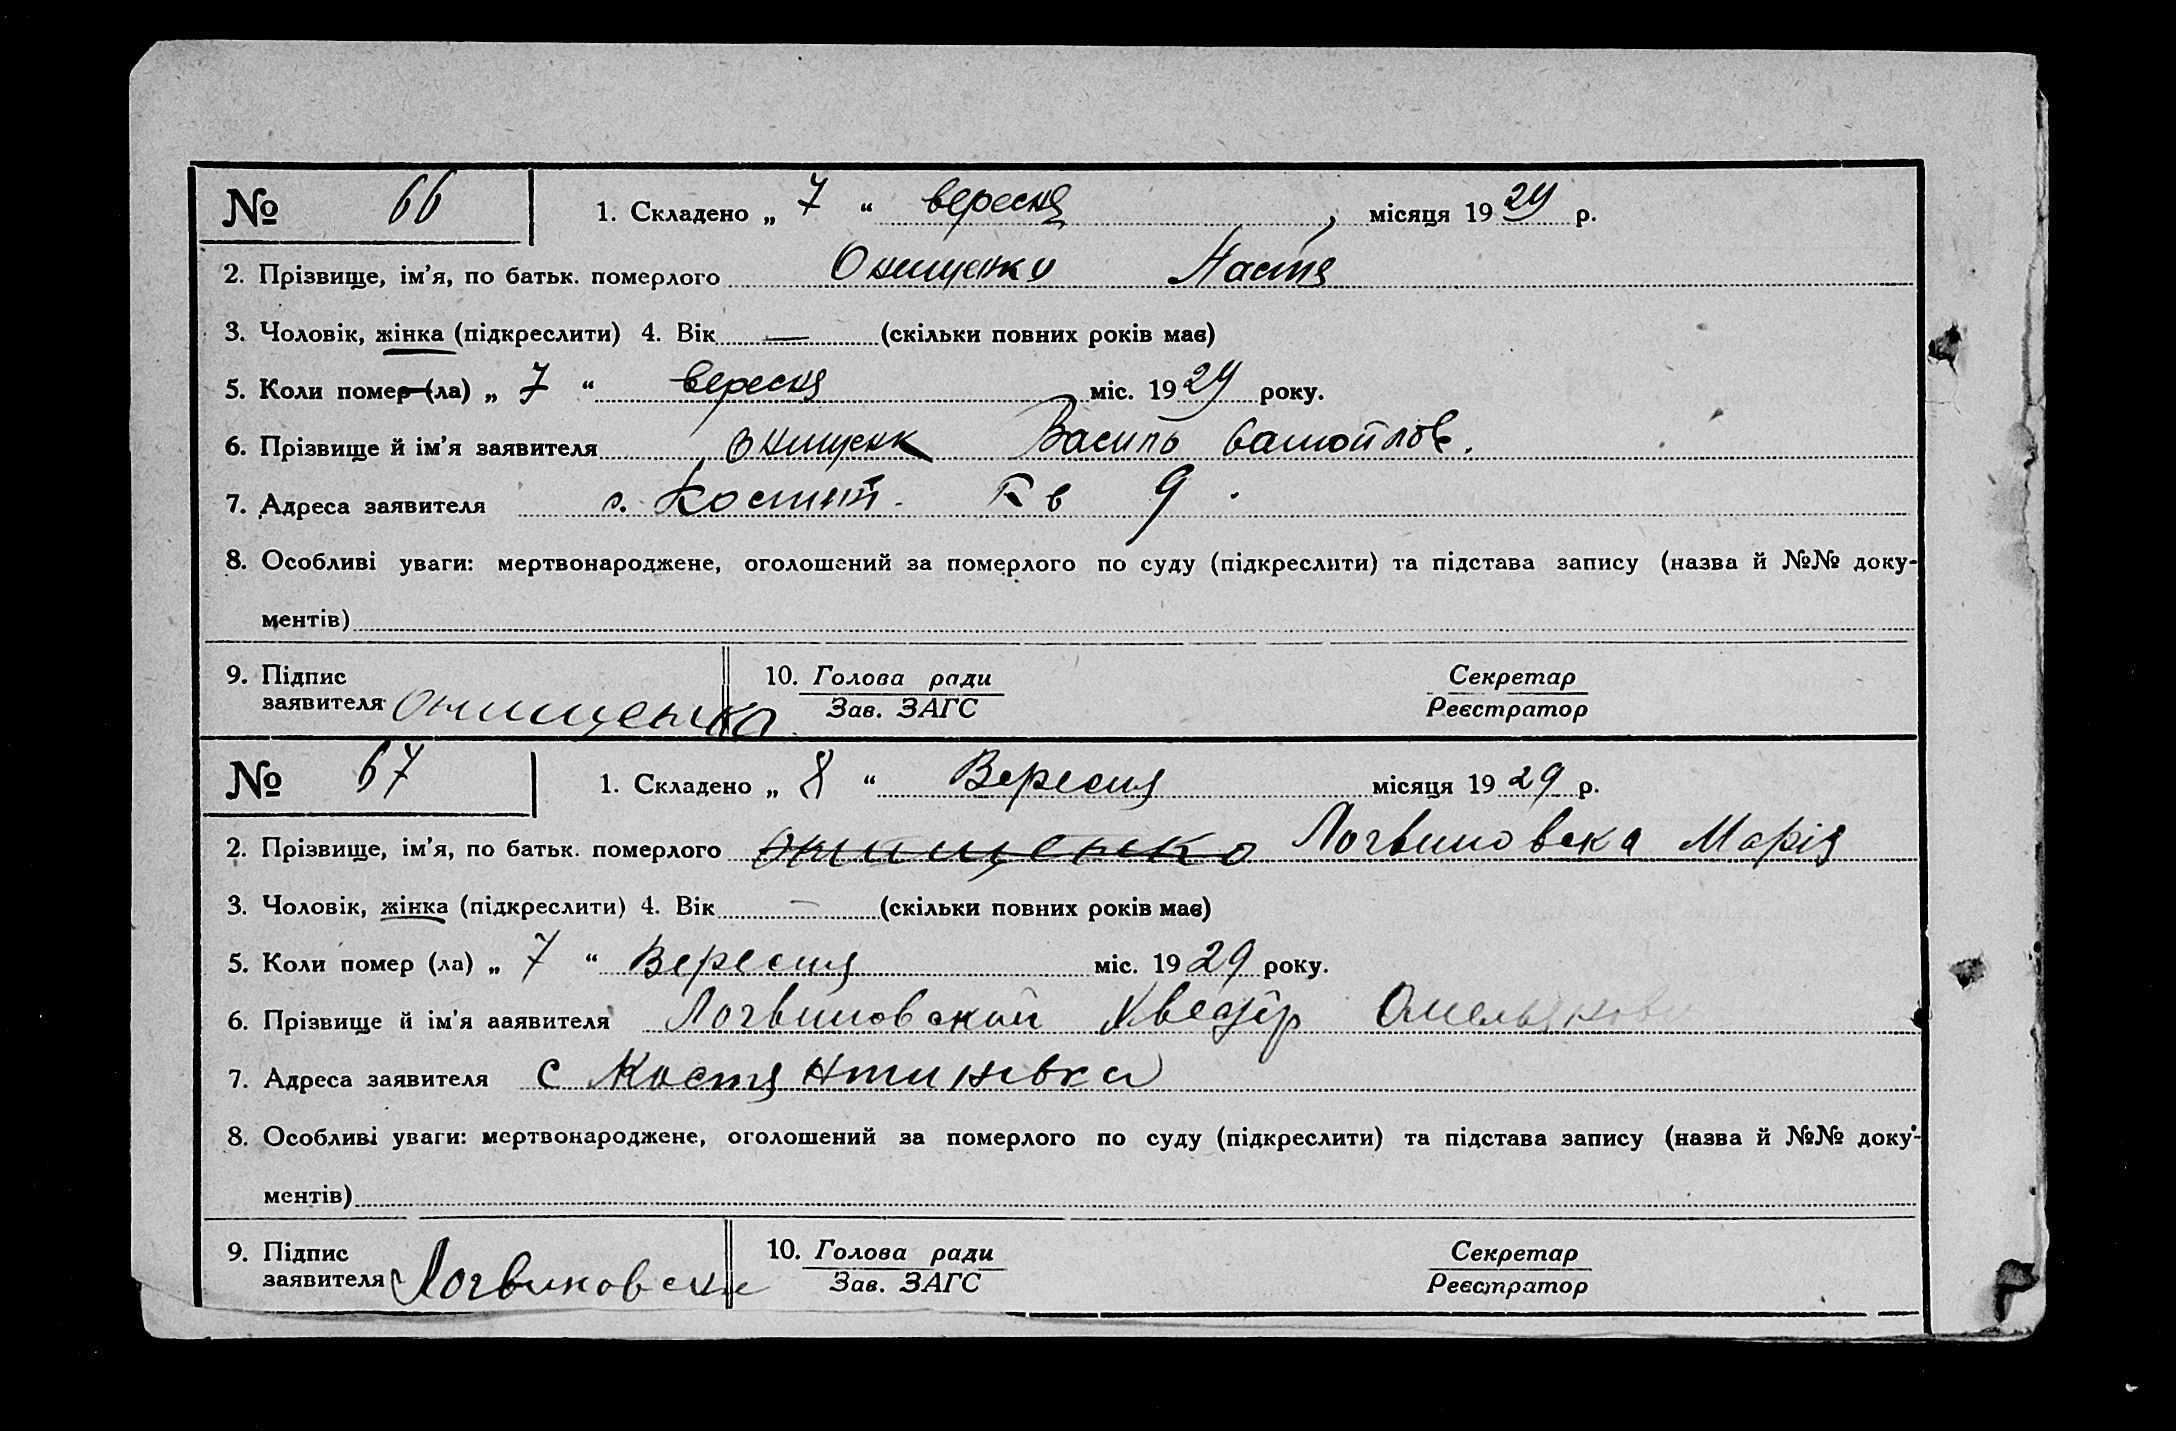 № 66 1. Складено „ 7 “ вересня місяця 1929 р.
2. Прізвище, ім’я, по батьк. померлого Онищенко Настя
3. Чоловік, жінка (підкреслити) 4. Вік — (скільки повних років має)
5. Коли помер (ла) „ 7 “ вересня міс. 1929 року.
6. Прізвище й ім’я заявителя Онищенк Василь Самойлов.
7. Адреса заявителя с. Костянт. Кв 9.
8. Особливі уваги: мертвонароджене, оголошений за померлого по суду (підкреслити) та підстава запису (назва й №№ доку-
ментів)
9. Підпис 10. Голова ради Секретар
заявителя Онищенко Зав. ЗАГС Реєстратор
№ 67 1. Складено „ 8 “ Вересня місяця 1929 р.
2. Прізвище, ім’я, по батьк. померлого Онищенко Логвиновска Марія
3. Чоловік, жінка (підкреслити) 4. Вік — (скільки повних років має)
5. Коли помер (ла) „ 7 “ Вересня міс. 1929 року.
6. Прізвище й ім’я ааявителя Логвиновский Хведір
7. Адреса заявителя с Костянтинівка
8. Особливі уваги: мертвонароджене, оголошений за померлого по суду (підкреслити) та підстава запису (назва й №№ доку-
ментів)
9. Підпис 10. Голова ради Секретар
заявителя Зав. ЗАГС Реєстратор